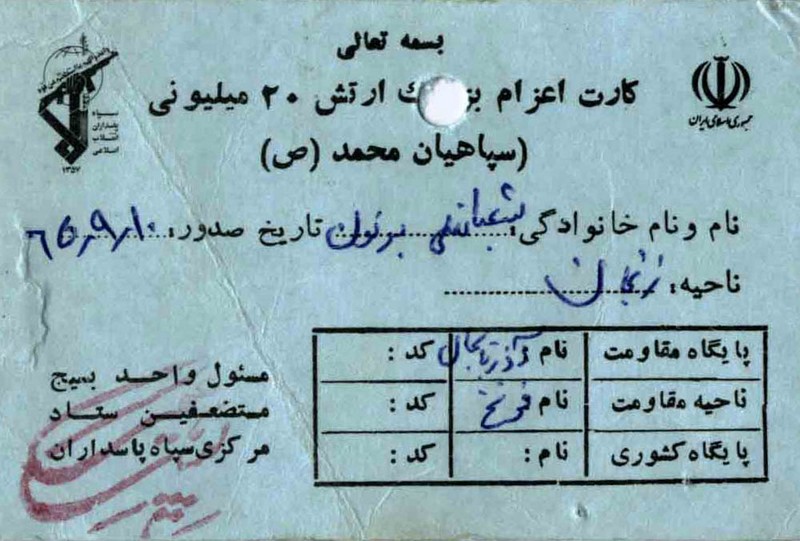 بسمه تعالی
کارت اعزام بزرك ارتش ۲۰ میلیونی
(سپاهیان محمد (ص)
جمهوری اسلامی ایران
سپاه
پاسداران
انقلاب
اسلامی
۱۳۵۷
نام و نام خانوادگی: تاریخ صدور: ۶۵٫۹٫۱۰
ناحیه: زنجان
پایگاه مقاومت نام آذربایجان کد :
ناحیه مقاومت نام کد :
پایگاه کشوری نام : کد :
مسئول واحد بسیج
مستضعفین ستاد
مرکزی سپاه پاسداران